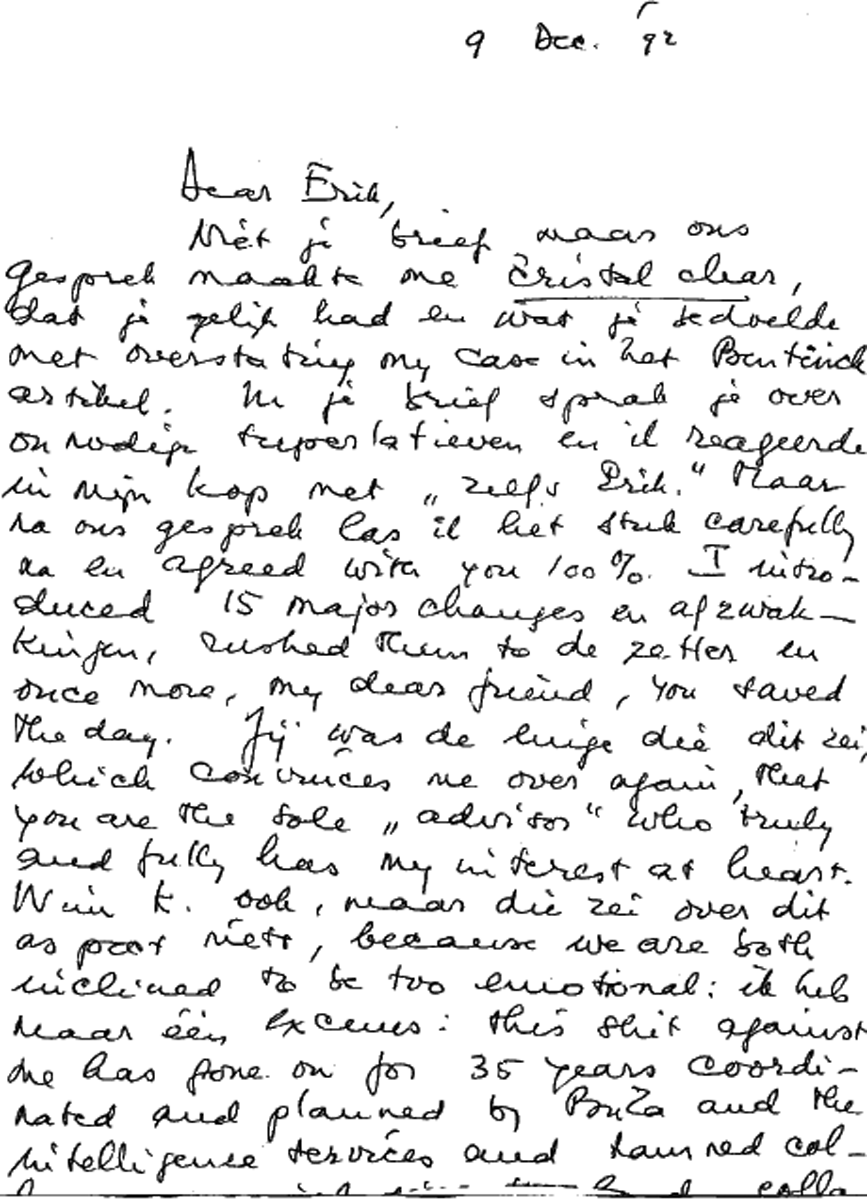 9 Dec. '92
Dear Erik,
Niet je brief maar ons
gesprek maakte me cristal clear,
dat je gelijk had en wat je bedoelde
met overstating my case in het Bentinck
artikel. In je brief sprak je over
onnodige superlatieven en ik reageerde
in mijn kop met „zelfs Erik." Maar
na ons gesprek las ik het stuk carefully
na en agreed with you 100%. I intro-
duced 15 major changes en afzwak-
kingen, rushed them to de zetter en
once more, my dear friend, you saved
the day. Jij was de enige die dit zei,
which convinces me over again, that
you are the sole „advisor" who truly
and fully has my interest at heart.
Wim K. ook, maar die zei over dit
aspect niets, because we are both
inclined to be too emotional: ik heb
maar één excuus: this shit against
me has gone on for 35 years coordi-
nated and planned by BuZa and the
intelligence services and tanned col-